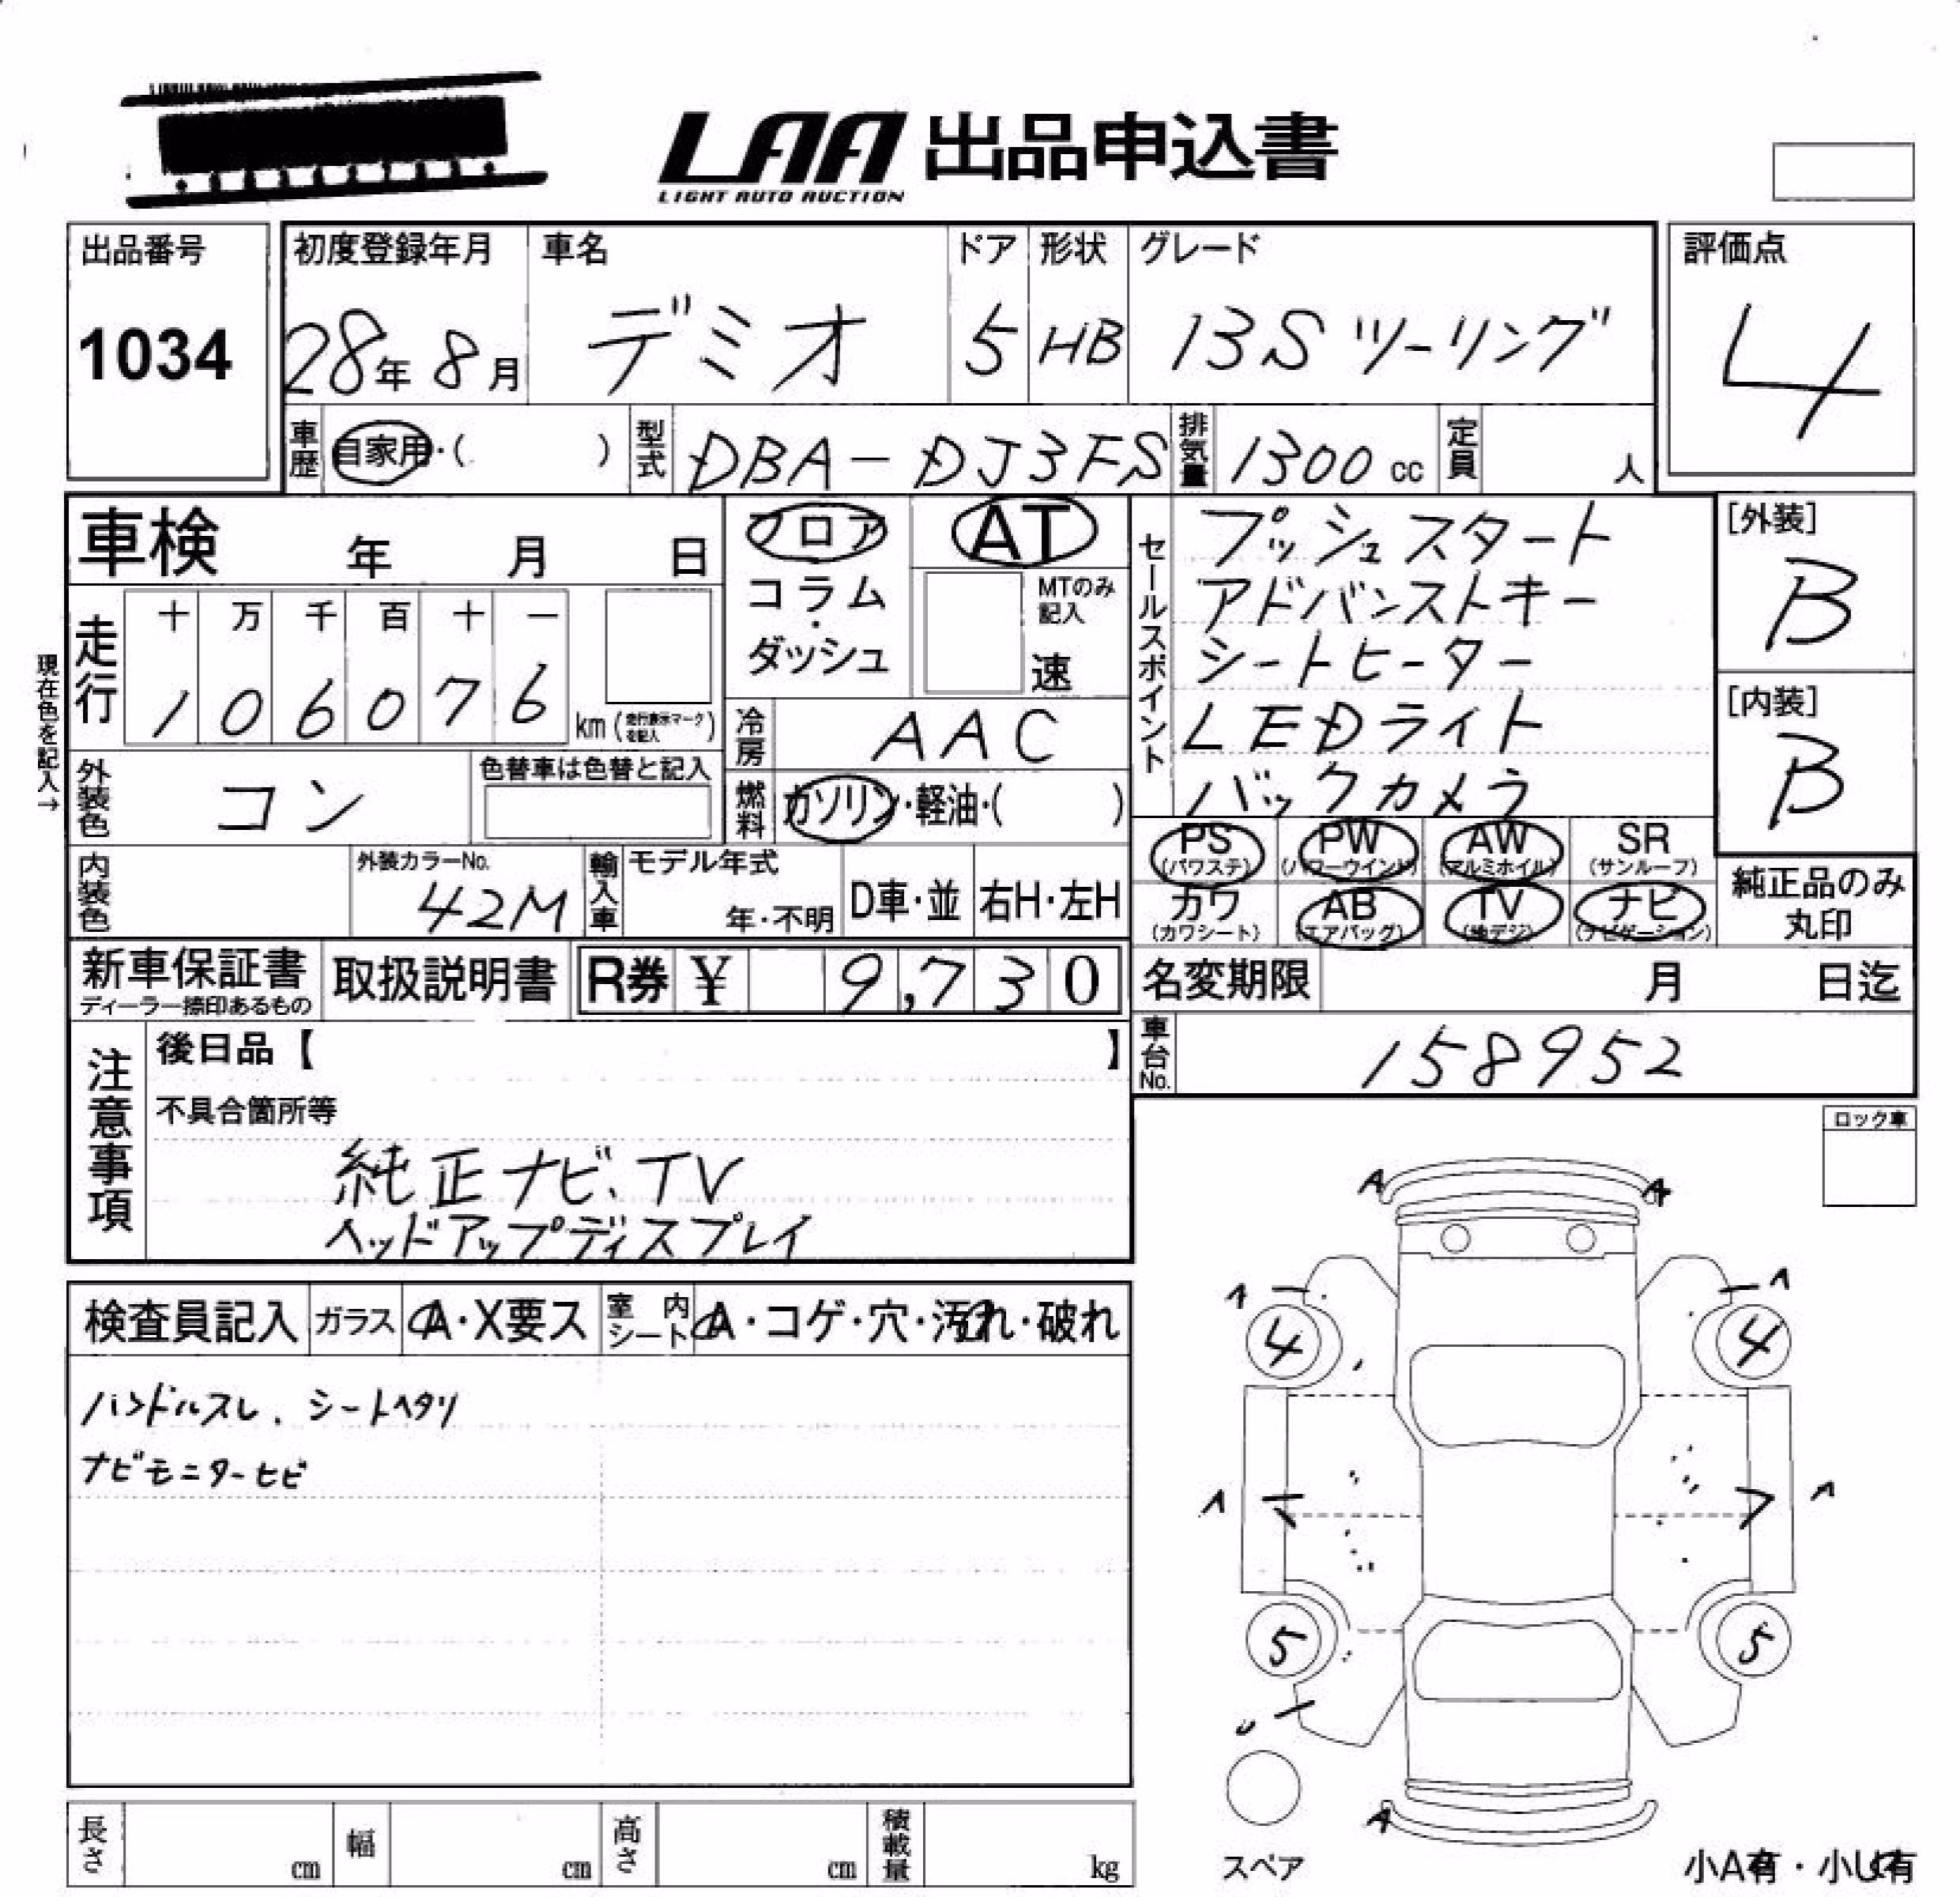 LAA 出品申込書
LIGHT AUTO AUCTION
出品番号
1034
初度登録年月
28年 8月
車名
デミオ
ドア
5
形状
HB
グレード
13S ツーリング
評価点
4
車歴 自家用・( )
型式 DBA-DJ3FS
排気量 1300 cc
定員 人
車検 年 月 日
フロア
コラム・ダッシュ
AT
MTのみ記入
速
セールスポイント
プッシュスタート
アドバンストキー
シートヒーター
LEDライト
バックカメラ
[外装]
B
[内装]
B
現在色を記入→
走行
十 万 千 百 十 一
1 0 6 0 7 6
km (走行表示マークを記入)
冷房 AAC
外装色 コン
色替車は色替と記入
燃料 ガソリン・軽油・( )
PS (パワステ)
PW (パワーウインド)
AW (アルミホイル)
SR (サンルーフ)
カワ (カワシート)
AB (エアバッグ)
TV (地デジ)
ナビ (ナビゲーション)
純正品のみ丸印
内装色
外装カラーNo.
42M
輸入車
モデル年式
年・不明
D車・並
右H・左H
新車保証書
ディーラー捺印あるもの
取扱説明書
R券 ¥ 9,730
名変期限 月 日迄
車台No. 158952
注意事項
後日品【 】
不具合箇所等
純正ナビ、TV
ヘッドアップディスプレイ
ロック車
検査員記入
ガラス A・X要ス
室内シート A・コゲ・穴・汚れ・破れ
ハンドルスレ、シートヘタリ
ナビモニターヒビ
A A
A A
4 4
A A
5 5
U
A
スペア
小A有・小U有
長さ cm
幅 cm
高さ cm
積載量 kg